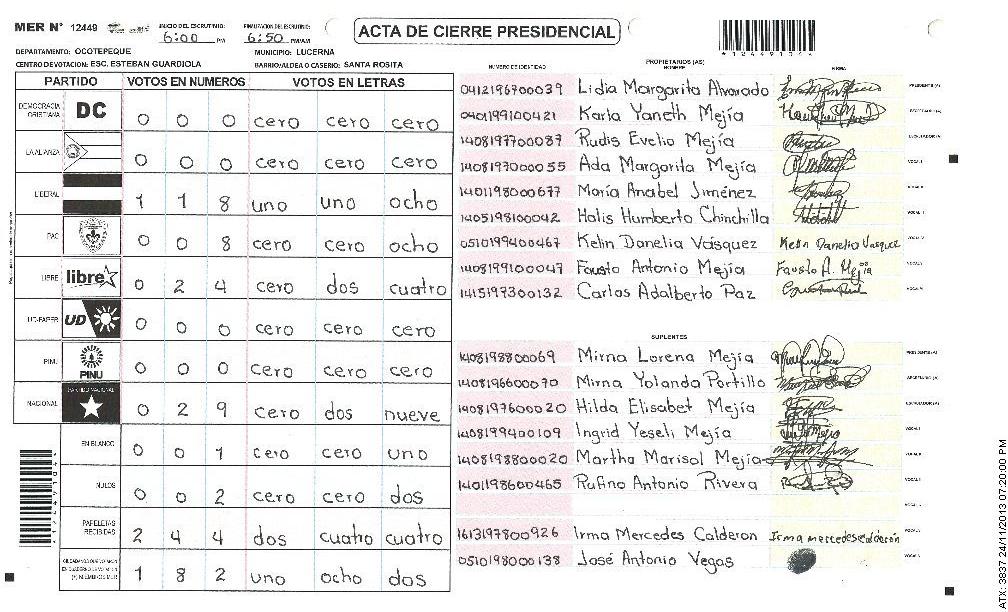 MER Nº 12449
INICIO DEL ESCRUTINIO: 6:00 PM
FINALIZACION DEL ESCRUTINIO: 6:50 PM/AM
ACTA DE CIERRE PRESIDENCIAL
DEPARTAMENTO: OCOTEPEQUE
MUNICIPIO: LUCERNA
CENTRO DE VOTACION: ESC. ESTEBAN GUARDIOLA
BARRIO/ALDEA O CASERIO: SANTA ROSITA
PARTIDO VOTOS EN NUMEROS VOTOS EN LETRAS
DEMOCRACIA CRISTIANA DC 0 0 0 cero cero cero
LA ALIANZA 0 0 0 cero cero cero
LIBERAL 1 1 8 uno uno ocho
PAC 0 0 8 cero cero ocho
LIBRE libre 0 2 4 cero dos cuatro
UD-FAPER UD 0 0 0 cero cero cero
PINU PINU 0 0 0 cero cero cero
NACIONAL PARTIDO NACIONAL 0 2 9 cero dos nueve
EN BLANCO 0 0 1 cero cero uno
NULOS 0 0 2 cero cero dos
PAPELETAS RECIBIDAS 2 4 4 dos cuatro cuatro
1 8 2 uno ocho dos
NUMERO DE IDENTIDAD PROPIETARIOS (AS) NOMBRE FIRMA
0412196700039 Lidia Margarita Alvarado PRESIDENTE (A)
0401199100421 Karla Yaneth Mejía SECRETARIO (A)
1408197700087 Rudis Evelio Mejía ESCRUTADOR (A)
1408197000055 Ada Margarita Mejía VOCAL I
1401198000677 María Anabel Jiménez VOCAL II
1405198100042 Halis Humberto Chinchilla VOCAL III
0510199400467 Kelin Danelia Vásquez Kelin Danelia Vasquez VOCAL IV
1408199100047 Fausto Antonio Mejía Fausto A. Mejía VOCAL V
1415197300132 Carlos Adalberto Paz VOCAL VI
SUPLENTES
1408198800069 Mirna Lorena Mejía PRESIDENTE (A)
1408196600070 Mirna Yolanda Portillo SECRETARIO (A)
1408197600020 Hilda Elisabet Mejía ESCRUTADOR (A)
1408199400109 Ingrid Yeseli Mejía VOCAL I
1408198800020 Martha Marisol Mejía VOCAL II
1401198600465 Rufino Antonio Rivera
1613197800926 Irma Mercedes Calderon Irma mercedes calderón
0510198000138 José Antonio Vegas
ATX: 3837 24/11/2013 07:20:00 PM